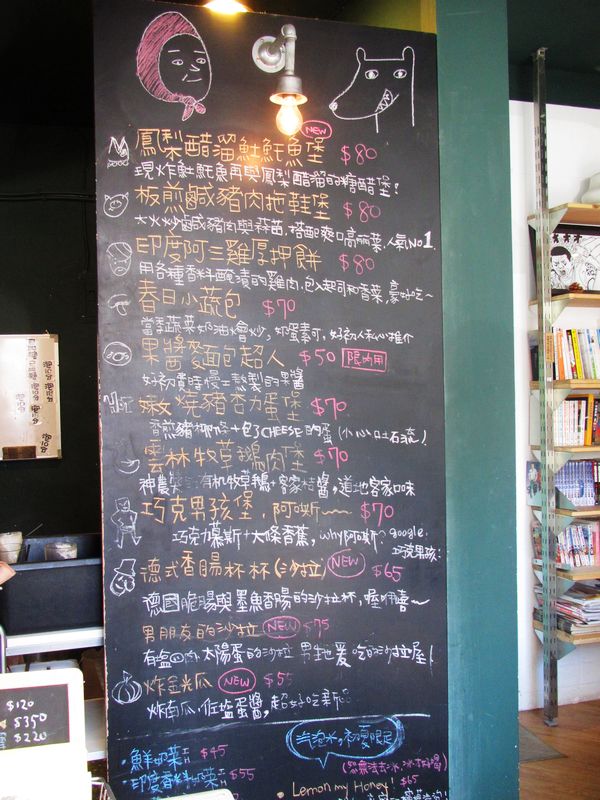 NEW
鳳梨醋溜魠魠魚堡 $80
現炸魠魠魚再與鳳梨醋溜的糖醋堡!
板煎鹹豬肉拖鞋堡 $80
大火炒鹹豬肉與蒜苗.搭配爽口高麗菜.人氣No1.
印度阿三雞厚押餅 $80
用各種香料醃漬的雞肉,包入起司和香菜,豪好吃~
春日小蔬包 $70
當季蔬菜奶油燴炒,蛋素可,好初人私心推介
果醬麵包超人 $50 限內用
好初費時慢工熬製的果醬
嫩燒豬杏力蛋堡 $70
香煎豬柳 + 包了CHEESE的蛋(小心土石流)
雲林牧草鵝肉堡 $70
神農 有机牧草鵝+客家桔醬,道地客家口味
巧克男孩堡,阿嘶~~ $70
巧克力慕斯+大條香蕉,why阿嘶? google.
巧克男孩:
德式香腸杯杯(沙拉) NEW $65
德國脆腸與墨魚香腸的沙拉杯,喔柳喜~
男朋友的沙拉 NEW $75
有鹹肉太陽蛋的沙拉 男生也愛吃的沙拉屋!
炸金光瓜 NEW $55
炸南瓜.佐鹽蛋醬,超好吃
汽泡水,初夏限定
鮮奶茶 $45
印度香料奶茶 $55
(恕無法去冰,冰才好喝)
Lemon my Honey! $65
$120
$350
$220